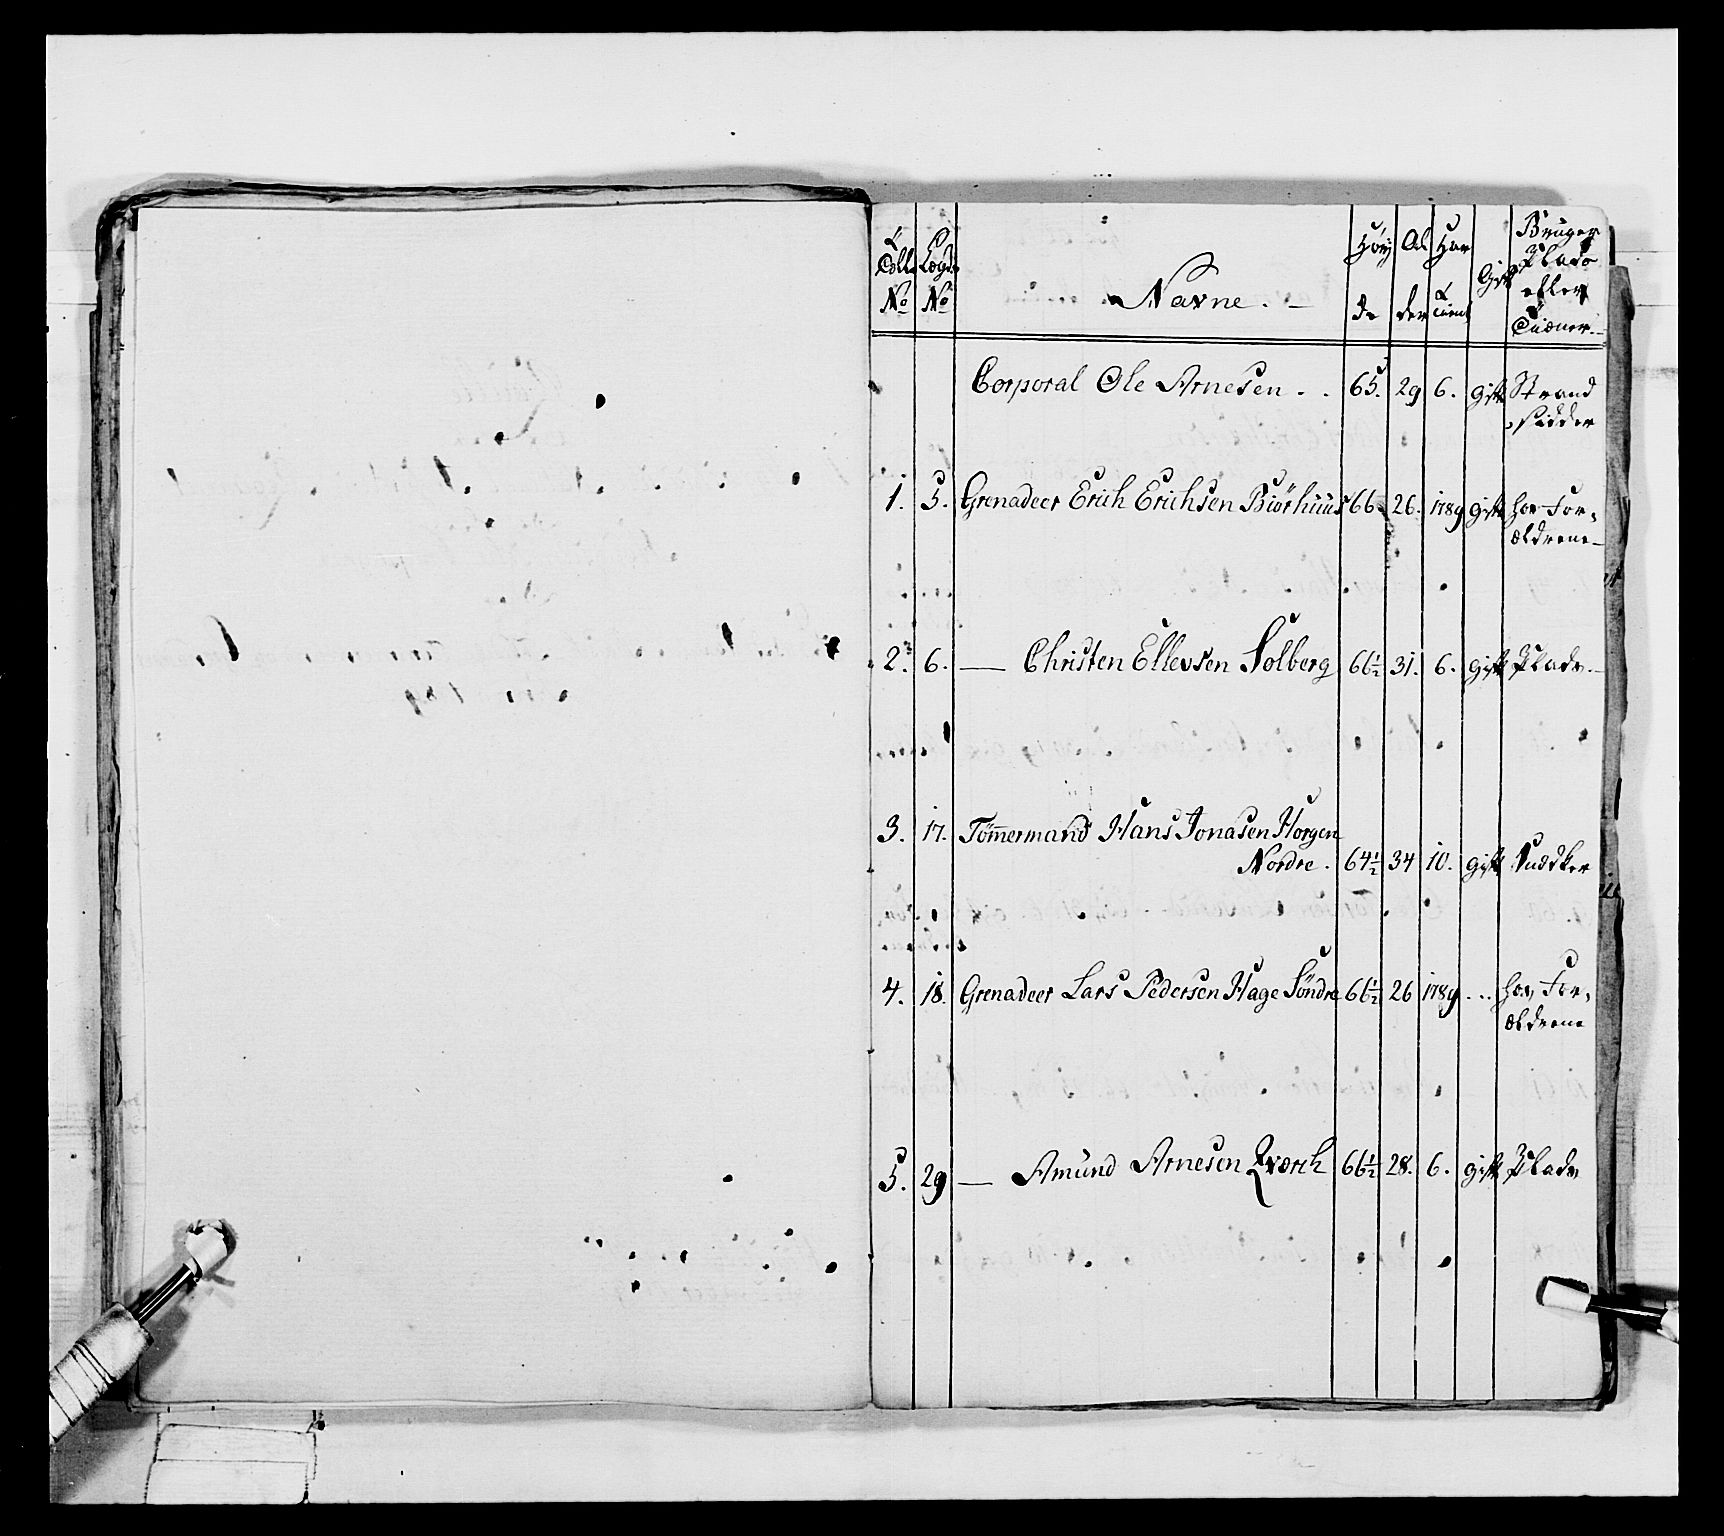 Tall No
Lægds No
Navne. —
Høy de
Al der
Har tient
Gift
Bruger Plads eller Tiener.
Corporal Ole Arnesen . . 65. 29 6. gift Strand
sidder
1. 5. Grenadeer Erich Erichsen Biørhuus 66. 26. 1789 gift hos For-
ældrene
2. 6. — Christen Ellevsen Solberg 66½ 31. 6. gift Plads
3. 17. Tømmermand Hans Jonasen Horgen
Nordre. 64½ 34 10. gift Snedker
4. 18. Grenadeer Lars Pedersen Hage Søndre 66½ 26 1789 ... hos For-
ældrene
5. 29 — Amund Arnesen Qværch 66½ 28. 6. gift Plads